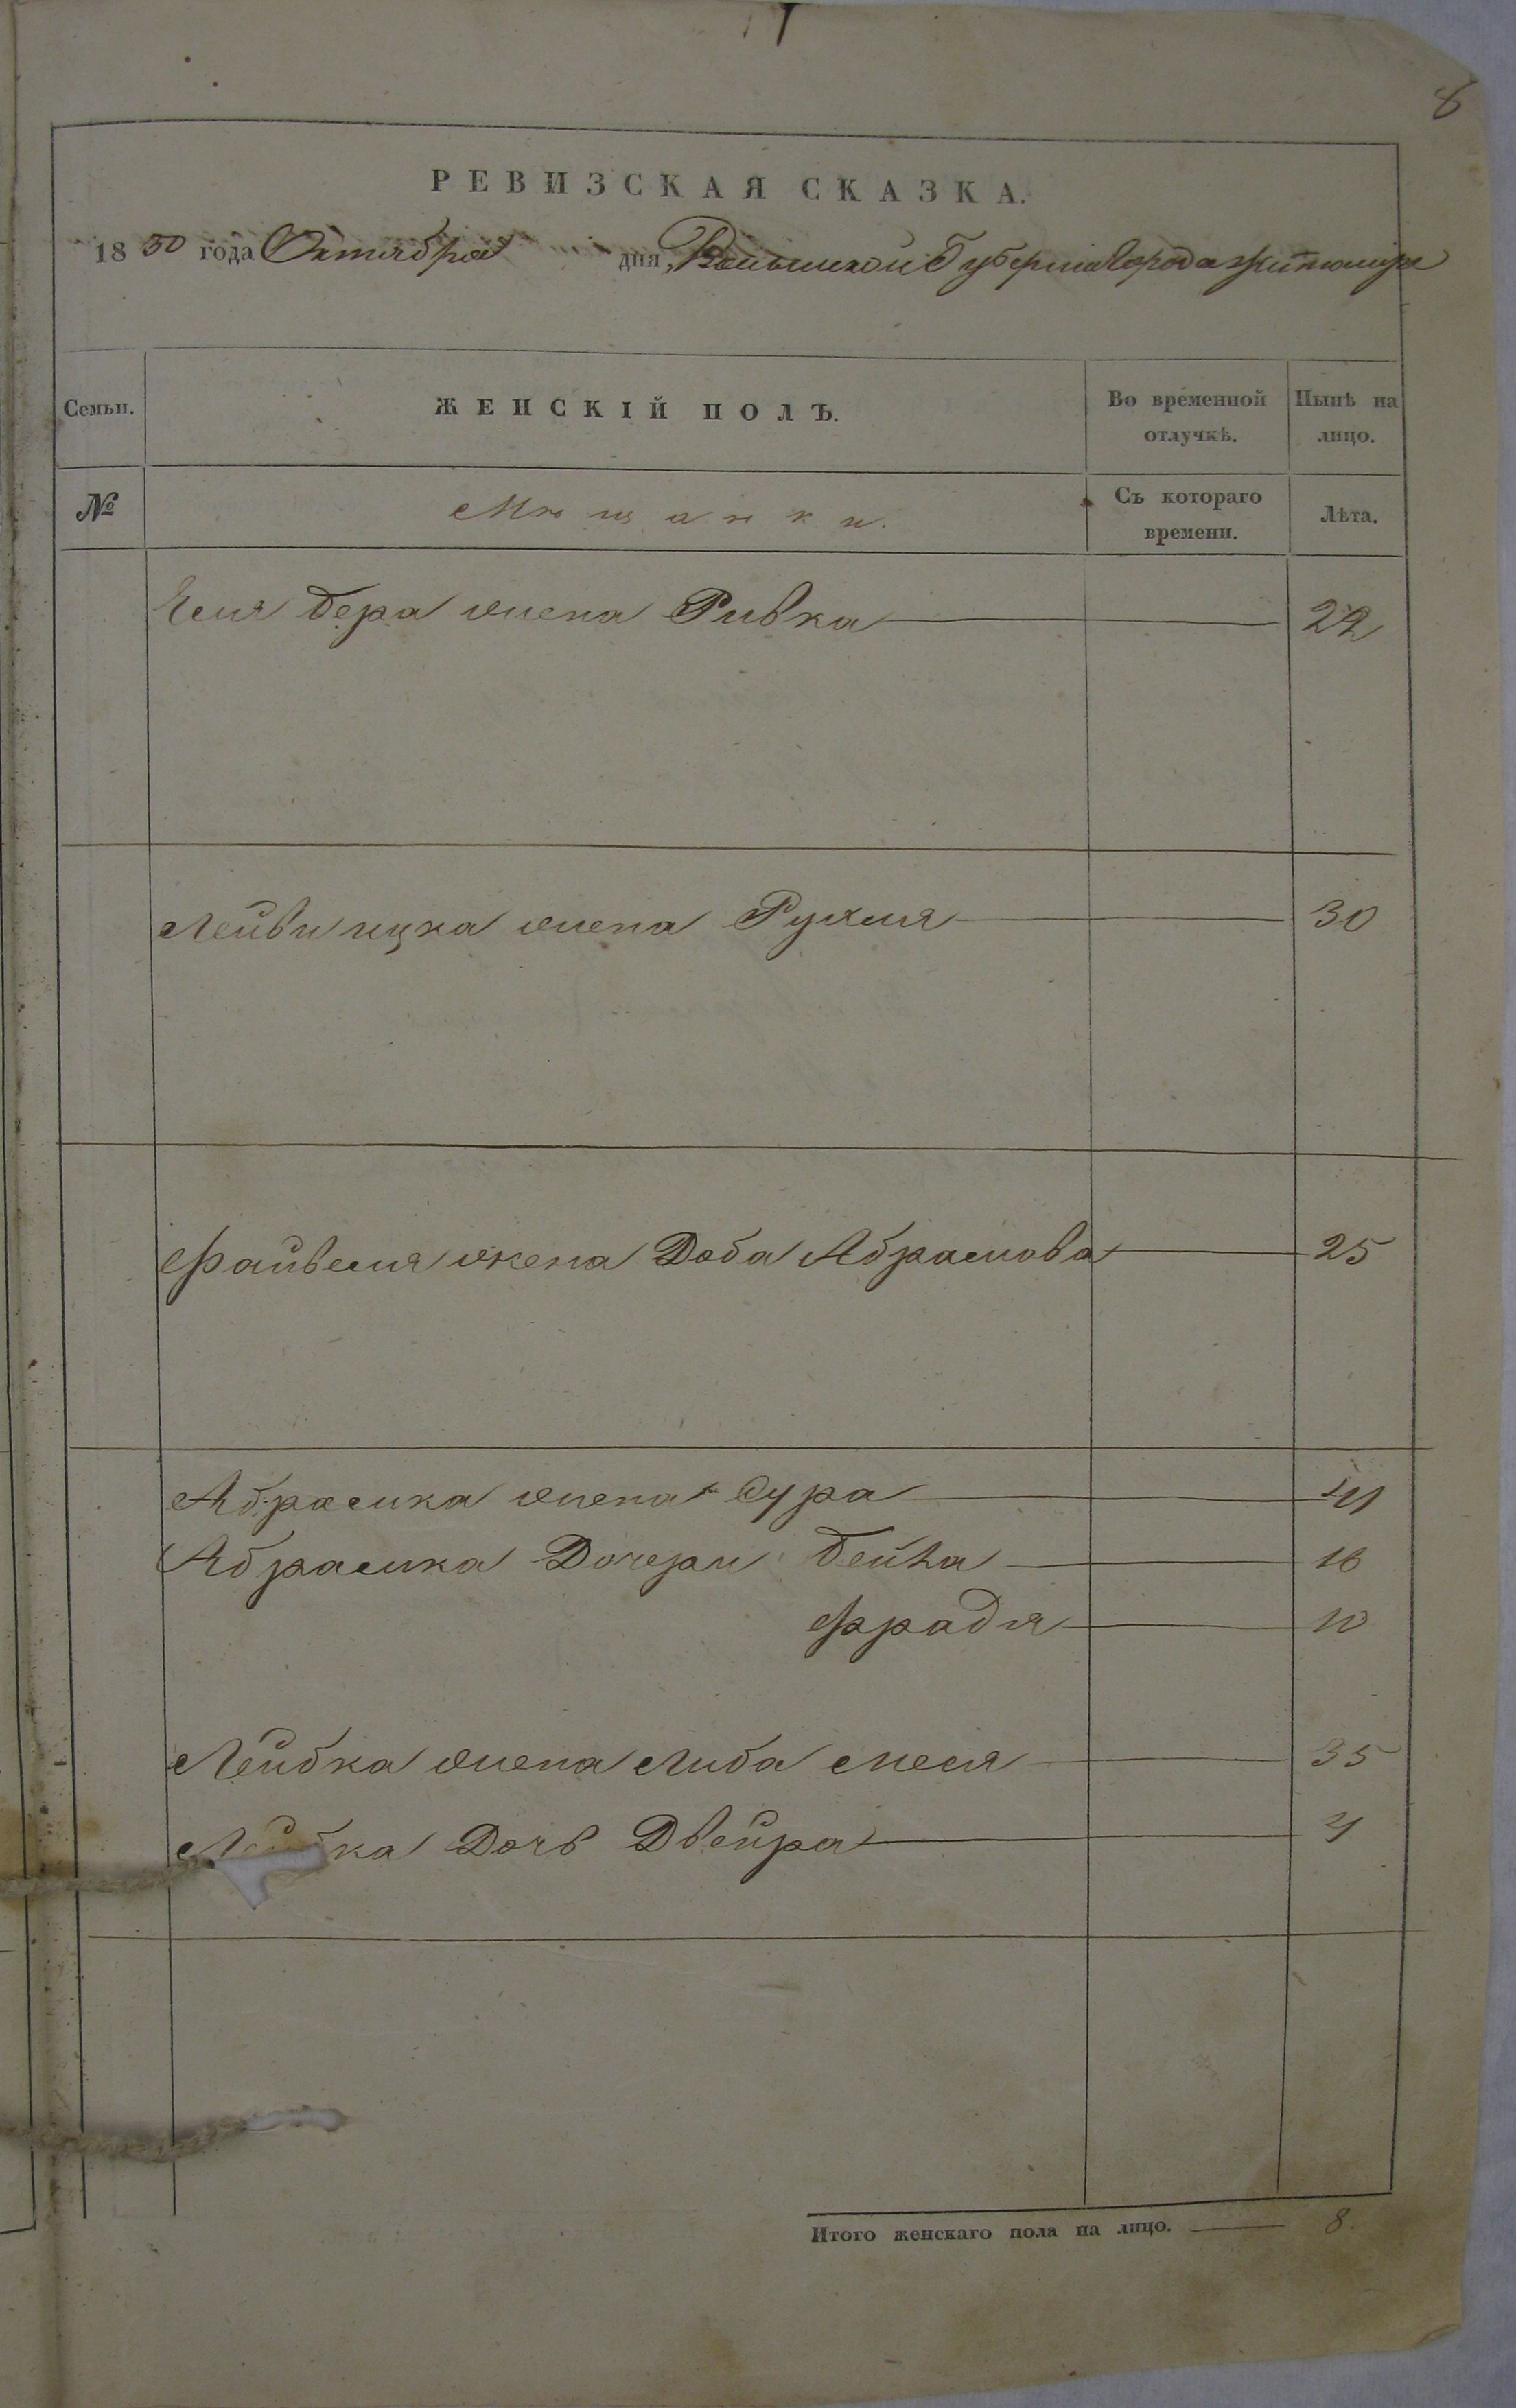 8
РЕВИЗСКАЯ СКАЗКА.
1850 года Октября дня, Волынской Губернии Города Житомира
Семьи.
ЖЕНСКІЙ ПОЛЪ.
Во временной отлучкѣ.
Нынѣ на лицо.
№
Мѣщанки.
Съ котораго времени.
Лѣта.
Бера жена Ривка 22
жена Рухля 30
Файвеля жена Доба Абрамова 25
Абрамка жена Сура 41
Абрамка Дочери Бейла 16
Фрадя 10
Лейбка жена Либа 35
Лейбка Дочь Двейра 4
Итого женскаго пола на лицо. 8.